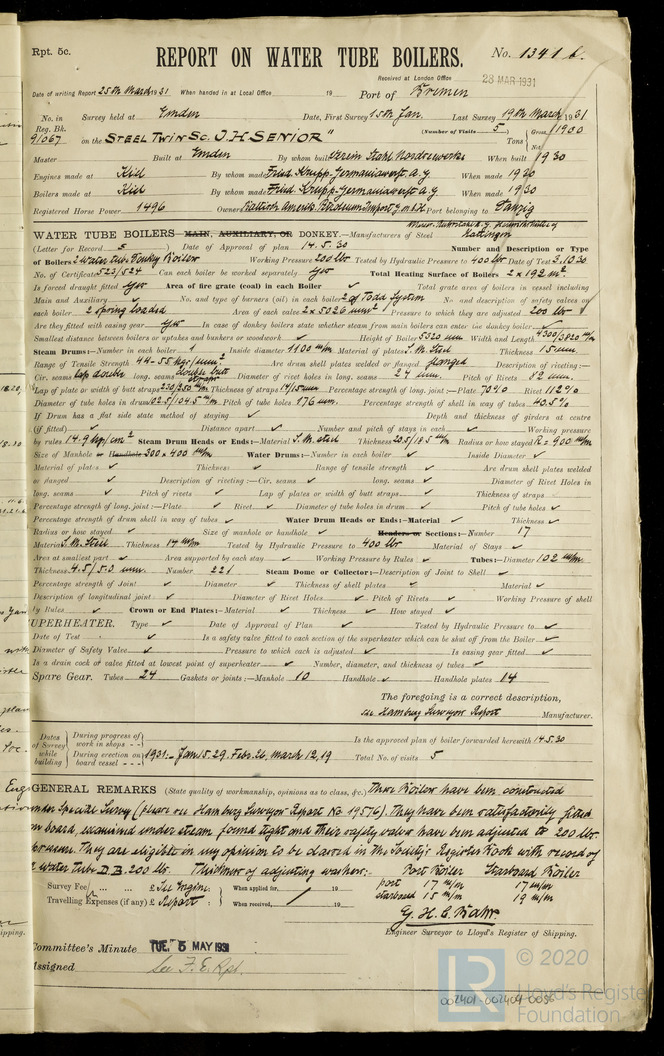 Rpt. 5c.
REPORT ON WATER TUBE BOILERS.
No. 1341 b.
Received at London Office 28 MAR 1931
Date of writing Report 25th March 1931 When handed in at Local Office 19 Port of Bremen
No. in Reg. Bk. 91067 Survey held at Emden Date, First Survey 15th Jan. Last Survey 19th March 1931
(Number of Visits 5)
on the STEEL TWIN SC. "J. H. SENIOR" Tons Gross Net
Master Built at Emden By whom built Verein Stahl Nordseewerke When built 1930
Engines made at Kiel By whom made Fried. Krupp-Germaniawerft A.G When made 1930
Boilers made at Kiel By whom made Fried. Krupp-Germaniawerft A.G When made 1930
Registered Horse Power 1496 Owners Port belonging to Danzig
WATER TUBE BOILERS MAIN, AUXILIARY, OR DONKEY.—Manufacturers of Steel Hattingen
(Letter for Record S) Date of Approval of plan 14.5.30 Number and Description or Type
of Boilers 2 water tube Donkey Boilers Working Pressure 200 lbs Tested by Hydraulic Pressure to 400 lbs Date of Test 3.10.30
No. of Certificate 523/524 Can each boiler be worked separately Yes Total Heating Surface of Boilers 2 x 192 m².
Is forced draught fitted Yes Area of fire grate (coal) in each Boiler ✓ Total grate area of boilers in vessel including
Main and Auxiliary ✓ No. and type of burners (oil) in each boiler 2 of Todd System No. and description of safety valves on
each boiler 2 spring loaded Area of each valve 2 x 5026 mm² Pressure to which they are adjusted 200 lbs
Are they fitted with easing gear Yes In case of donkey boilers state whether steam from main boilers can enter the donkey boiler ✓
Smallest distance between boilers or uptakes and bunkers or woodwork ✓ Height of Boiler 5520 mm Width and Length 4300/3820 m/m
Steam Drums:—Number in each boiler 1 Inside diameter 1100 m/m Material of plates S. M. Steel Thickness 15 mm
Range of Tensile Strength 44-55 kgr/mm² Are drum shell plates welded or flanged flanged Description of riveting:—
Cir. seams lap double long. seams double butt straps Diameter of rivet holes in long. seams 24 mm Pitch of Rivets 82 mm
Lap of plate or width of butt straps 230/250 m/m Thickness of straps 14/15 mm Percentage strength of long. joint:—Plate 70% Rivet 112%
Diameter of tube holes in drum 102.5/104.5 m/m Pitch of tube holes 176 mm. Percentage strength of shell in way of tubes 40.5%
If Drum has a flat side state method of staying ✓ Depth and thickness of girders at centre
(if fitted) ✓ Distance apart ✓ Number and pitch of stays in each ✓ Working pressure
by rules 14.9 kg/cm² Steam Drum Heads or Ends:—Material S. M. steel Thickness 20.5/18.5 m/m Radius or how stayed R = 900 m/m
Size of Manhole or Handhole 300 x 400 m/m Water Drums:—Number in each boiler ✓ Inside Diameter ✓
Material of plates ✓ Thickness ✓ Range of tensile strength ✓ Are drum shell plates welded
or flanged ✓ Description of riveting:—Cir. seams ✓ long. seams ✓ Diameter of Rivet Holes in
long. seams ✓ Pitch of rivets ✓ Lap of plates or width of butt straps ✓ Thickness of straps
Percentage strength of long. joint:—Plate ✓ Rivet ✓ Diameter of tube holes in drum ✓ Pitch of tube holes ✓
Percentage strength of drum shell in way of tubes ✓ Water Drum Heads or Ends:—Material ✓ Thickness ✓
Radius or how stayed ✓ Size of manhole or handhole ✓ Headers or Sections:—Number 17
Material S. M. Steel Thickness 14 m/m Tested by Hydraulic Pressure to 400 lbs Material of Stays ✓
Area at smallest part ✓ Area supported by each stay Working Pressure by Rules ✓ Tubes:—Diameter 102 m/m.
Thickness 4.5/5.5 mm. Number 221 Steam Dome or Collector:—Description of Joint to Shell ✓
Percentage strength of Joint ✓ Diameter ✓ Thickness of shell plates ✓ Material ✓
Description of longitudinal joint ✓ Diameter of Rivet Holes ✓ Pitch of Rivets ✓ Working Pressure of shell
by Rules ✓ Crown or End Plates:—Material ✓ Thickness ✓ How stayed ✓
UPERHEATER. Type ✓ Date of Approval of Plan ✓ Tested by Hydraulic Pressure to ✓
Date of Test ✓ Is a safety valve fitted to each section of the superheater which can be shut off from the Boiler ✓
Diameter of Safety Valve ✓ Pressure to which each is adjusted ✓ Is easing gear fitted ✓
Is a drain cock or valve fitted at lowest point of superheater ✓ Number, diameter, and thickness of tubes ✓
Spare Gear. Tubes 24 Gaskets or joints:—Manhole 10 Handhole ✓ Handhole plates 14
The foregoing is a correct description,
see Hamburg Surveyors Report Manufacturer.
Dates of Survey while building
During progress of work in shops - -
During erection on board vessel - - -
1931:- Jan 15. 29. Febr. 26, March 12, 19
Is the approved plan of boiler forwarded herewith 14.5.30
Total No. of visits 5
GENERAL REMARKS (State quality of workmanship, opinions as to class, &c.) These Boilers have been constructed
under Special Survey (please see Hamburg Surveyors Report No 19576). They have been satisfactorily fitted
on board, examined under steam found tight and their safety valves have been adjusted to 200 lbs.
pressure. They are eligible in my opinion to be classed in the Society's Register Book with record of
2 water tube D.B. 200 lbs. Thickness of adjusting washers:- Port Boiler Starboard Boiler
port 17 m/m 17 m/m
starboard 15 m/m 19 m/m
Survey Fee ... ... £ See Engine When applied for, 19
Travelling Expenses (if any) £ Report : When received, 19
G. H. E. Bahr.
Engineer Surveyor to Lloyd's Register of Shipping.
Committee's Minute TUE. 5 MAY 1931
Assigned See F.E. Rpt.
LR © 2020
Lloyd's Register
Foundation
002401-002404-0056